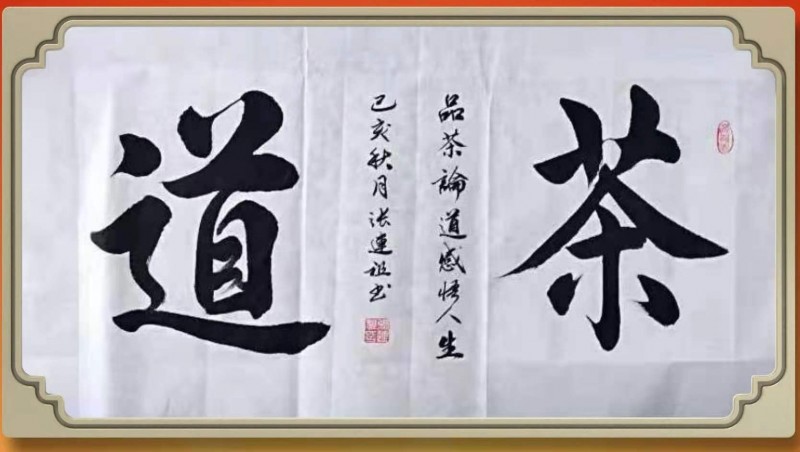 茶
品茶論道感悟人生
道
己亥秋月张連祖书